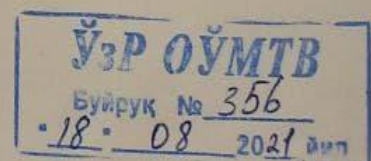 ЎзР ОЎМТВ
Буйруқ № 356
"18" 08 2021 йил